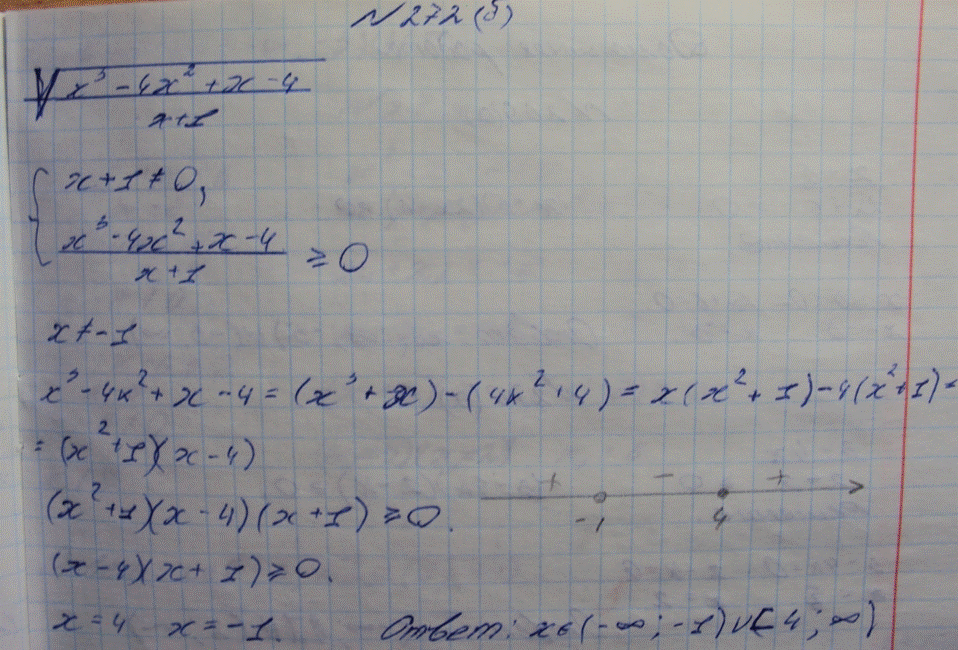 N 272 (б)
√((x³ - 4x² + x - 4)/(x+1))
{ x + 1 ≠ 0,
(x³ - 4x² + x - 4)/(x + 1) ≥ 0
x ≠ -1
x³ - 4x² + x - 4 = (x³ + x) - (4x² + 4) = x(x² + 1) - 4(x² + 1) =
= (x² + 1)(x - 4)
+ - +
(x² + 1)(x - 4)(x + 1) ≥ 0.
-1 4
(x - 4)(x + 1) ≥ 0.
x = 4 x = -1. Ответ: x ∈ (-∞; -1) ∪ [4; ∞)